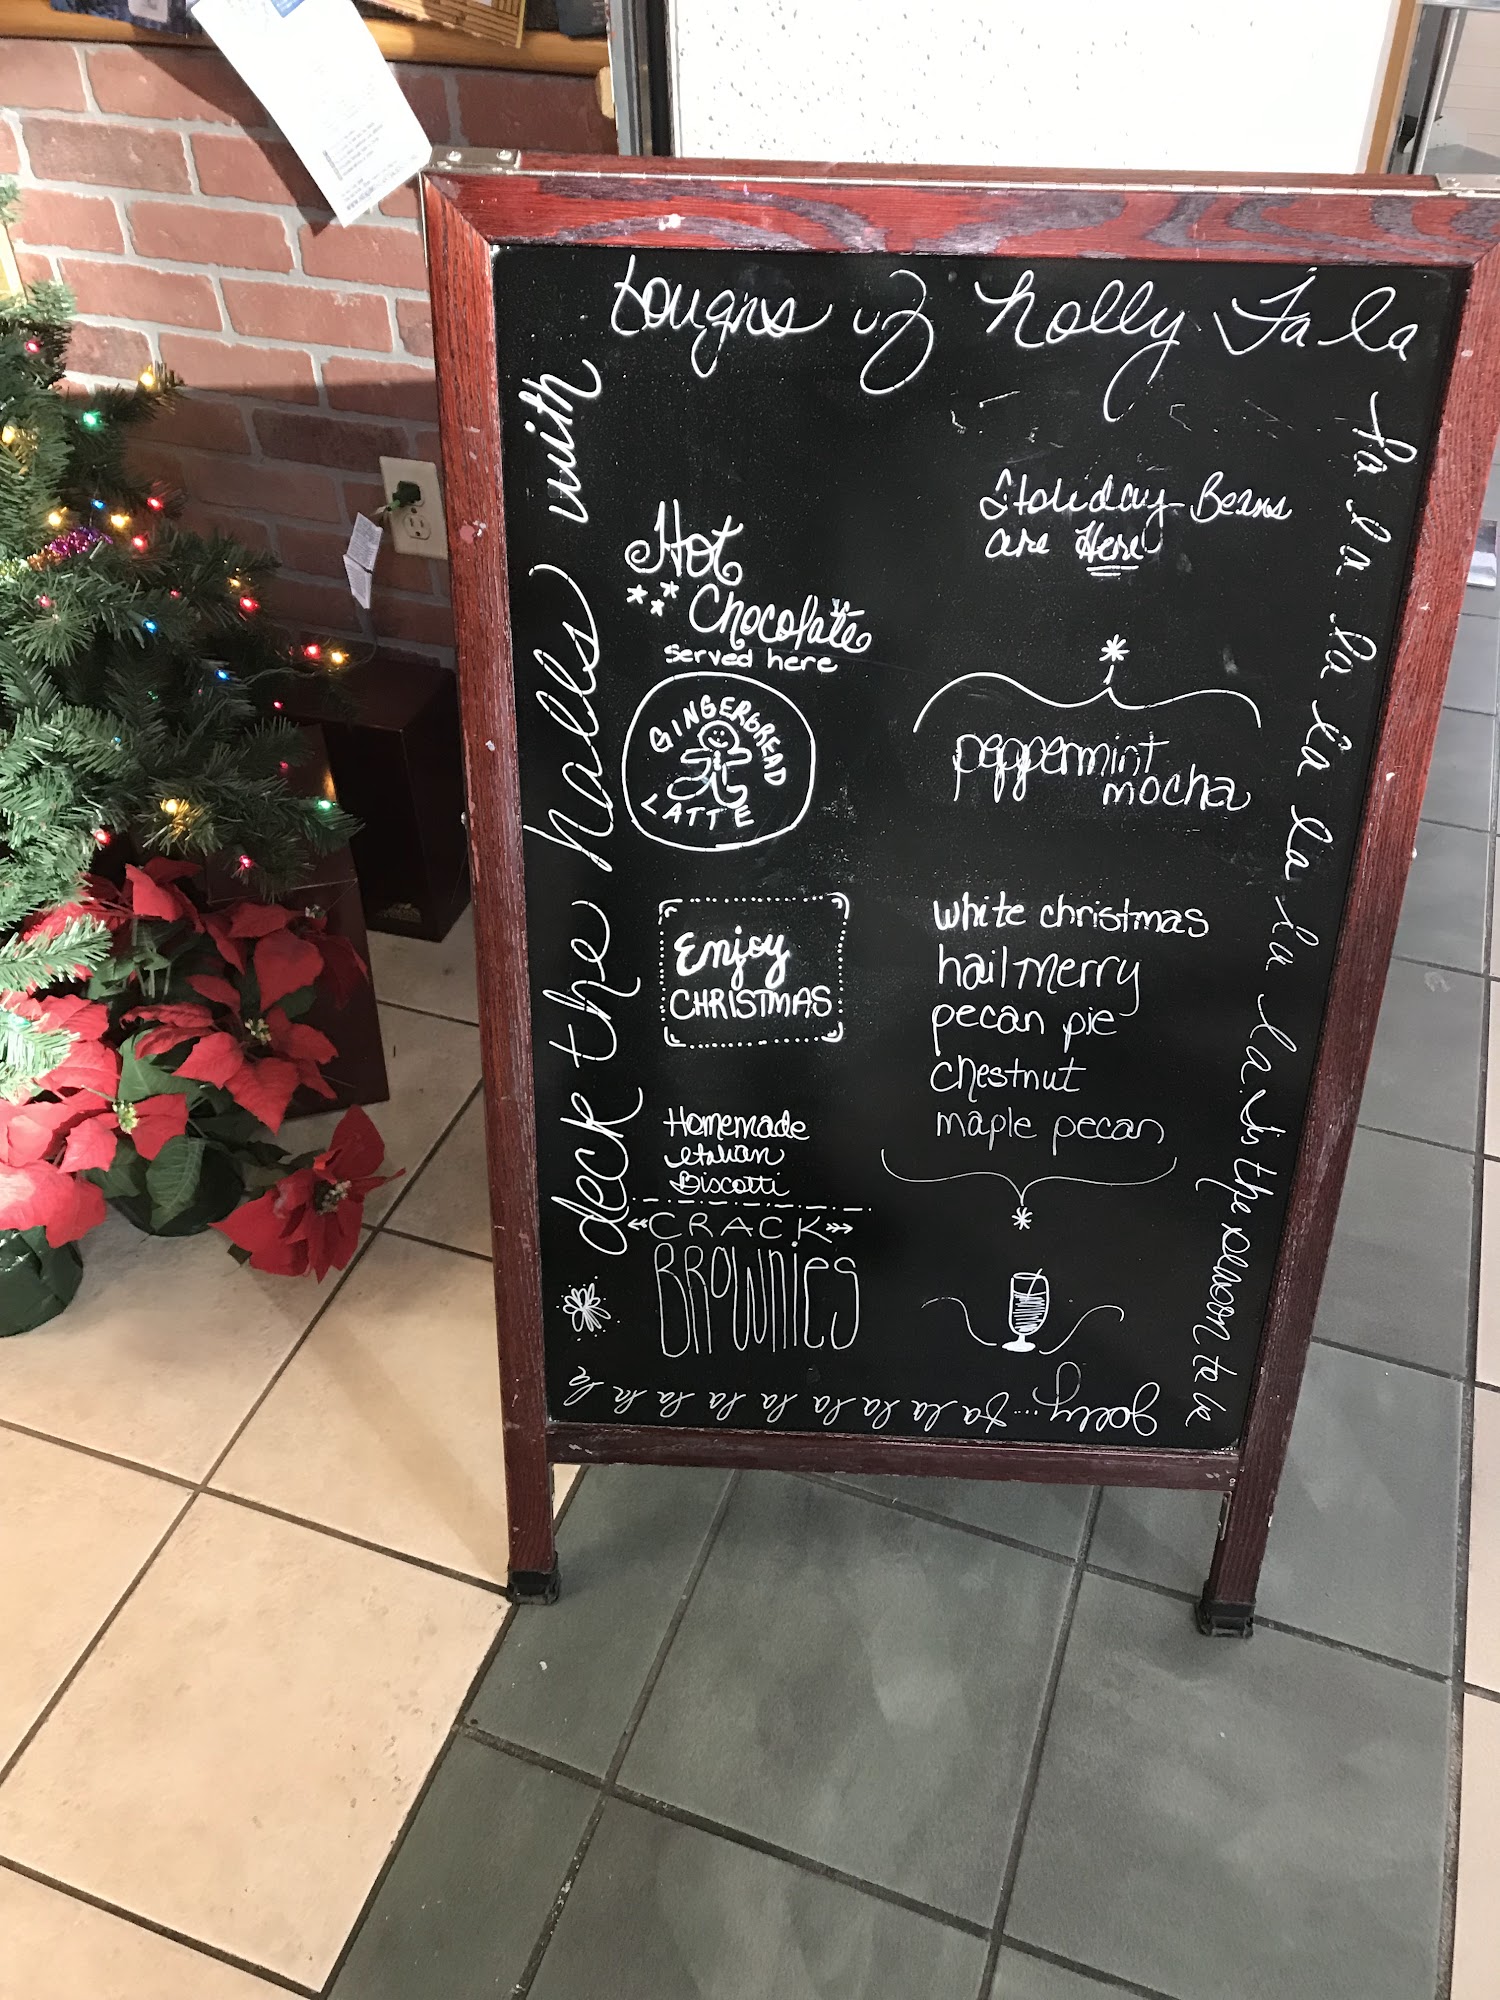 deck the halls with
boughs of holly Fa la
la la la la la la la. Tis the season to be
jolly... fa la la la la la la la la
Hot
Chocolate
served here
GINGERBREAD
LATTE
Enjoy
CHRISTMAS
Homemade
Italian
Biscotti
CRACK
BROWNIES
Holiday Beans
are Here
peppermint
mocha
white christmas
hail merry
pecan pie
chestnut
maple pecan